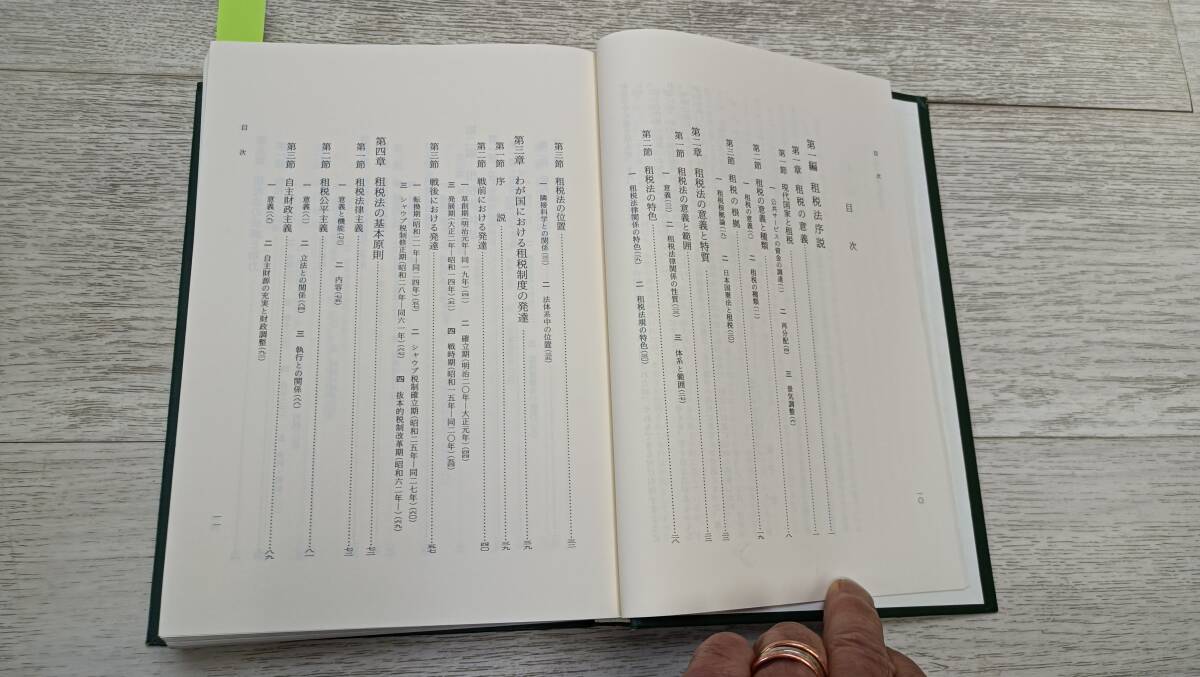 目次
目　次
第一編　租税法序説……一
第一章　租税の意義……一
第一節　現代国家と租税……一
一　公共サービスの資金の調達(一)　二　再分配(四)　三　景気調整(六)
第二節　租税の意義と種類……八
一　租税の意義(八)　二　租税の種類(一一)
第三節　租税の根拠……一九
一　租税根拠論(一九)　二　日本国憲法と租税(二〇)
第二章　租税法の意義と特質……二三
第一節　租税法の意義と範囲……二三
一　意義(二三)　二　租税法律関係の性質(二三)　三　体系と範囲(二七)
第二節　租税法の特色……二八
一　租税法律関係の特色(二九)　二　租税法規の特色(三〇)
一〇
第三節　租税法の位置……三二
一　隣接科学との関係(三二)　二　法体系中の位置(三五)
第三章　わが国における租税制度の発達……三九
第一節　序　説……三九
第二節　戦前における発達……四〇
一　草創期(明治元年―同一九年)(四一)　二　確立期(明治二〇年―大正元年)(四四)
三　発展期(大正二年―昭和一四年)(五一)　四　戦時期(昭和一五年―同二〇年)(五四)
第三節　戦後における発達……五七
一　転換期(昭和二一年―同二四年)(五七)　二　シャウプ税制確立期(昭和二五年―同二七年)(六〇)
三　シャウプ税制修正期(昭和二八年―同六一年)(六三)　四　抜本的税制改革期(昭和六二年―)(六九)
第四章　租税法の基本原則……七三
第一節　租税法律主義……七三
一　意義と機能(七三)　二　内容(七五)
第二節　租税公平主義……八一
一　意義(八一)　二　立法との関係(八四)　三　執行との関係(八八)
第三節　自主財政主義……八九
一　意義(九〇)　二　自主財源の充実と財政調整(九三)
目　次
一一